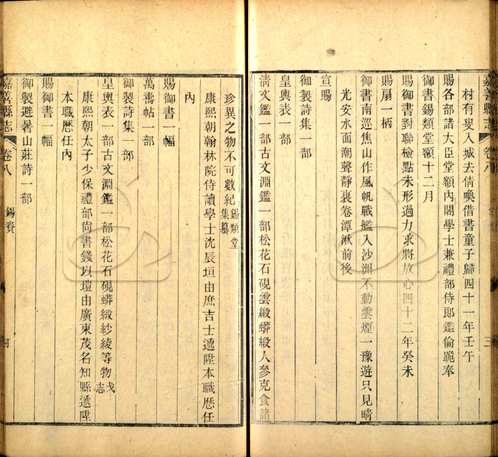 村有叟入城去倩喚借書童子歸四十一年壬午
賜各部諸大臣堂額內閣學士兼禮部侍郎鑑倫跪奉
御書錫類堂額十二月
賜御書對聯檢點未形過力求將放心四十二年癸未
賜扇一柄
御書南巡焦山作風帆戰艦入沙洲不動雲煙一豫遊只見晴
光安水面潮聲靜裹卷潭湫前後
宣賜
御製詩集一部
皇輿表一部
淸文鑑一部古文淵鑑一部松花石硯雲緞蟒緞人參克食諸
珍異之物不可數紀錫類堂集纂
康熙朝翰林院侍讀學士沈辰垣由庶吉士遞陞本職歷任
內
賜御書一幅
萬壽帖一部
御製詩集一部
皇輿表一部古文淵鑑一部松花石硯蟒緞紗綾等物志
康熙朝太子少保禮部尙書錢以塏由廣東茂名知縣遞陞
本職歷任內
賜御書一幅
御製避暑山莊詩一部
嘉善縣志
卷八
錫賚